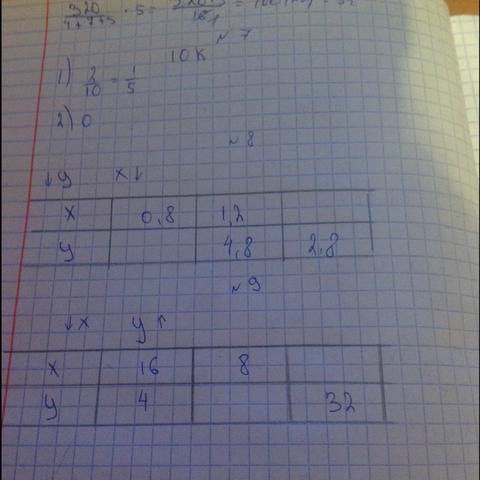 320 / 4+7+5 · 5 =
№ 7
10 к
1) 2/10 = 1/5
2) 0
№ 8
↓ y x ↓
x 0,8 1,2
y 4,8 2,8
№ 9
↓ x y ↑
x 16 8
y 4 32